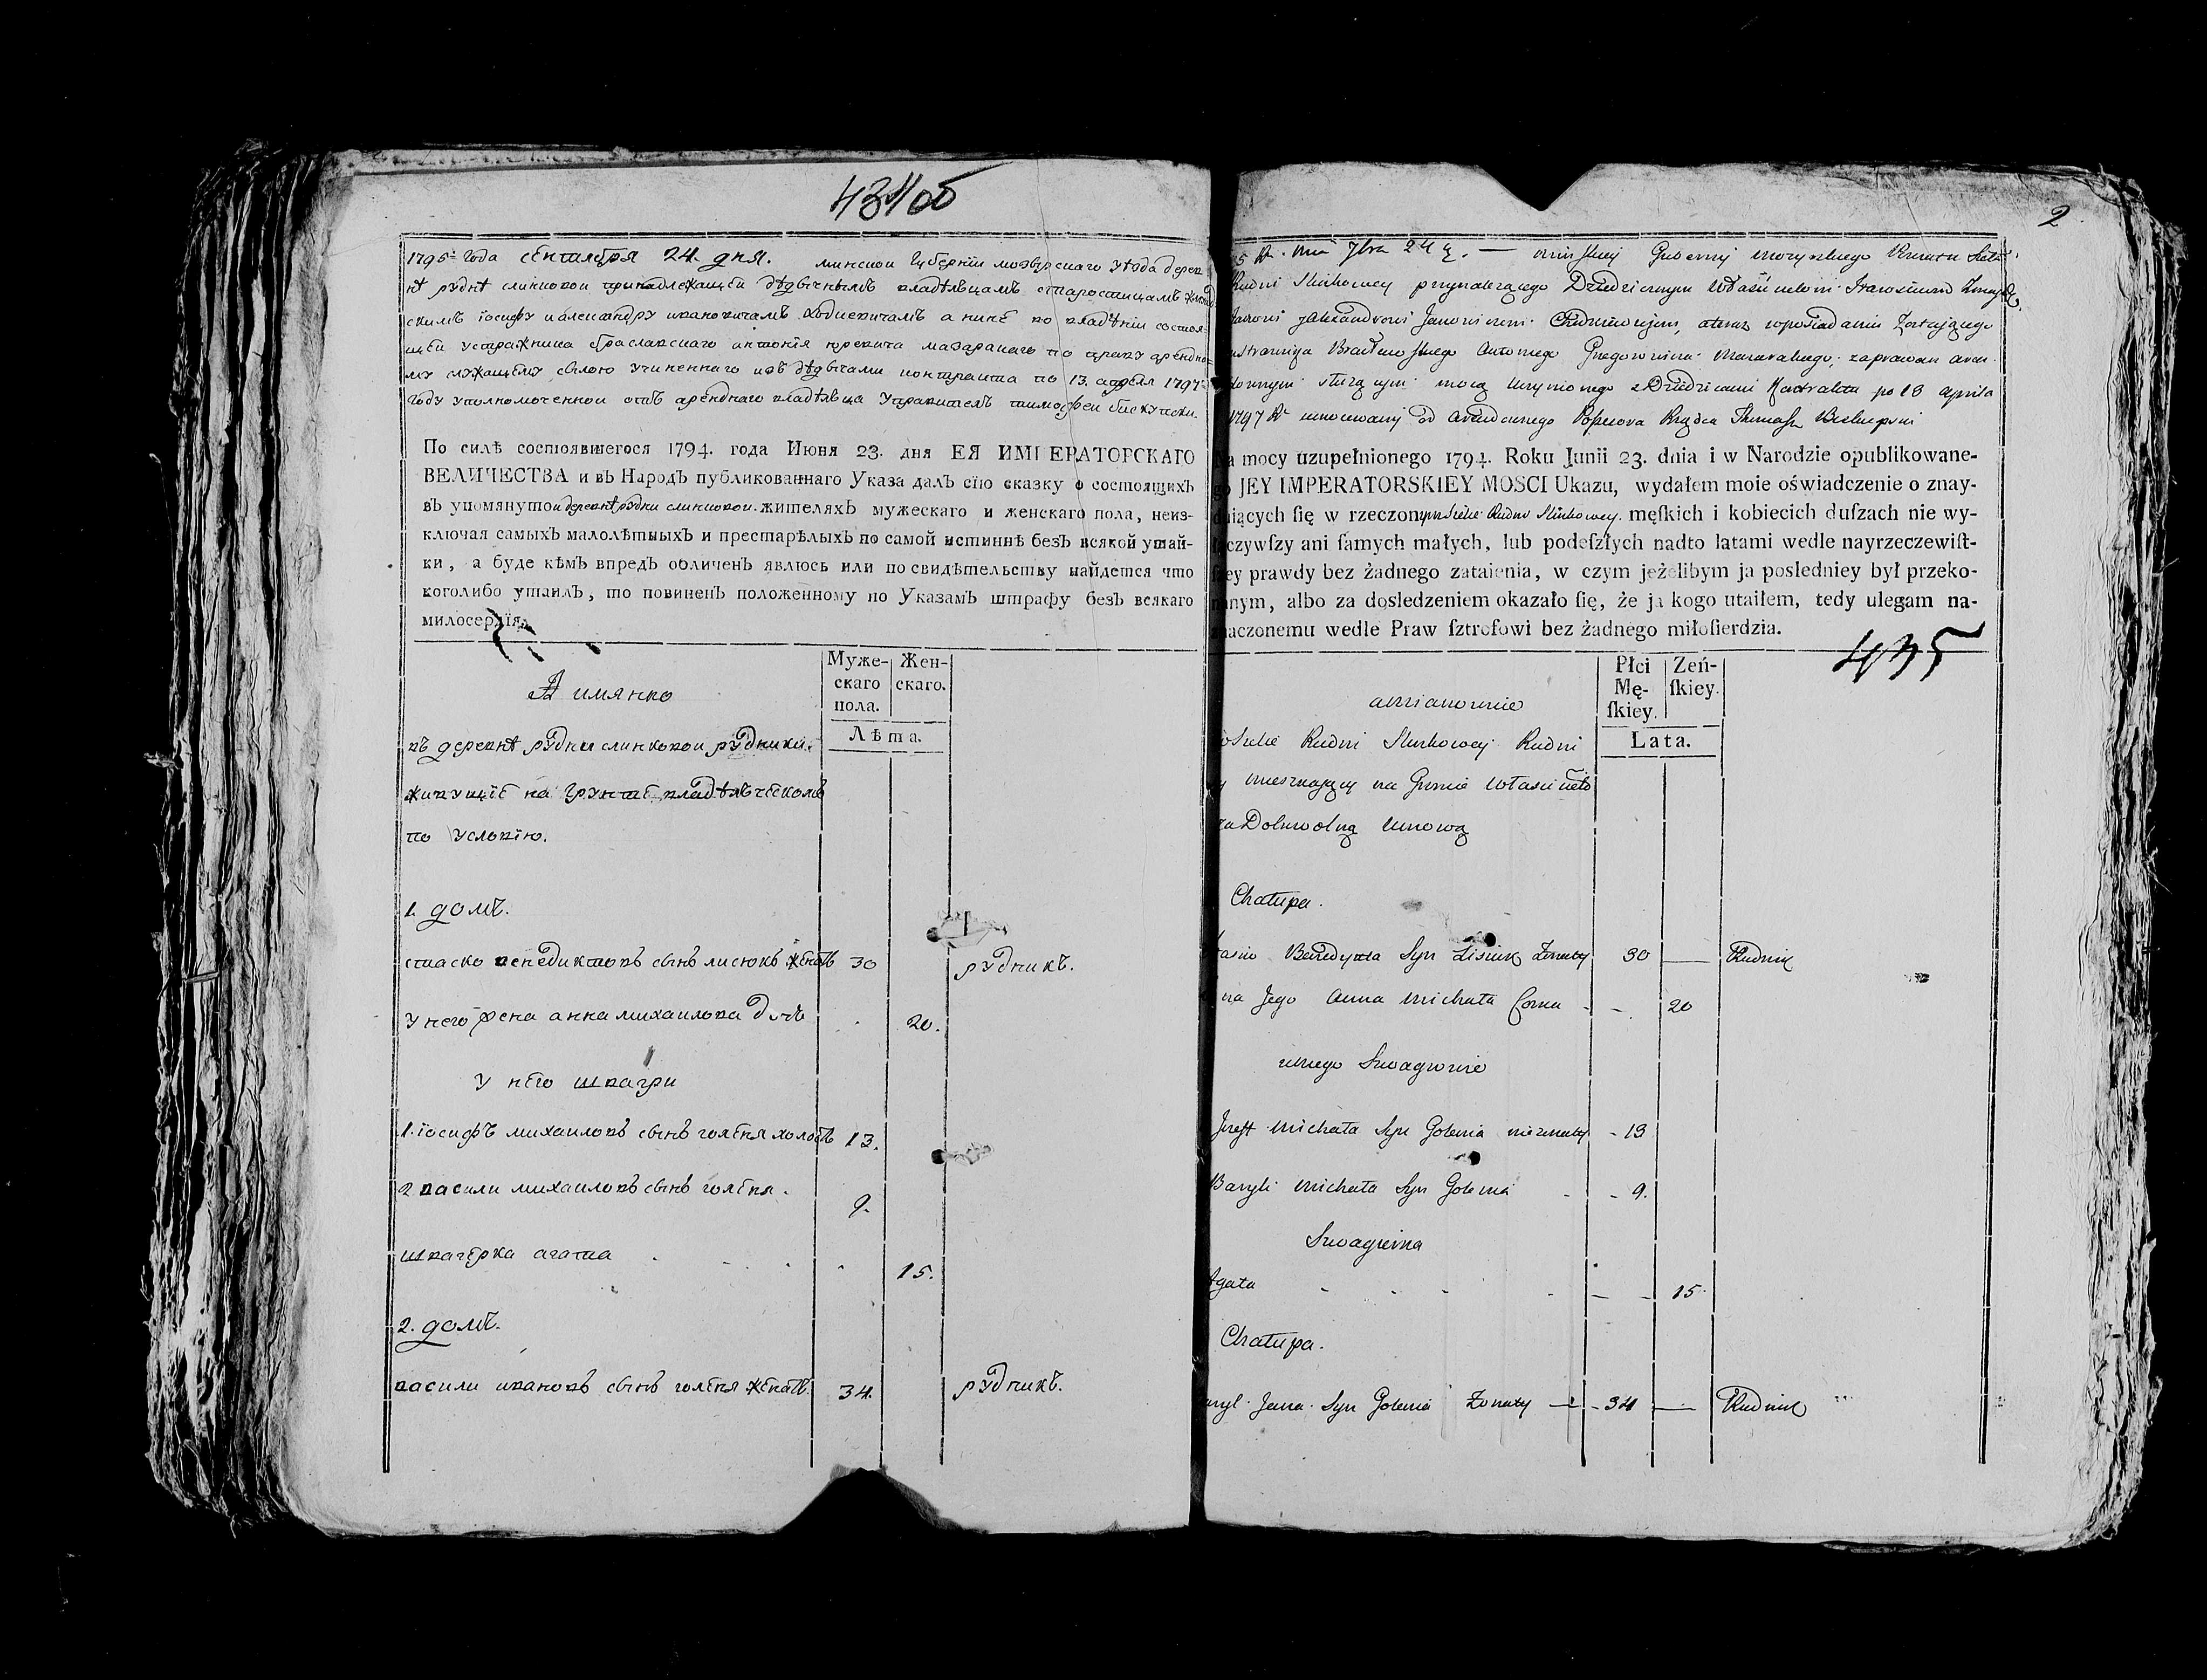 434об
1795 года сентября 24. дня. минской губернiи мозырскаго уѣзда дерев
нѣ руднѣ слинковой принадлежащей дѣдычнымъ владѣльцамъ старостицамъ
скимъ iосифу и александру ивановичамъ а нинѣ во владѣнiи состоя
щей браславскаго антонiя по праву арендно
му служащему силою учиненнаго изъ дѣдычами контракта по 13. апреля 1797
году уполномоченной отъ аренднаго владѣльца управитель тимофей бискупски.
По силѣ состоявшегося 1794. года Июня 23. дня ЕЯ ИМПЕРАТОРСКАГО
ВЕЛИЧЕСТВА и въ Народъ публикованнаго Указа далъ сїю сказку о состоящихъ
въ упомянутой деревнѣ рудни слинковой. жителяхъ мужескаго и женскаго пола, неиз-
ключая самыхъ малолѣтныхъ и престарѣлыхъ по самой истиннѣ безъ всякой утай-
ки, а буде кѣмъ впредъ обличенъ явлюсь или по свидѣтельству найдется что
коголибо утаилъ, то повиненъ положенному по Указамъ штрафу безъ всякаго
милосердїя.
А имянно
Муже-
скаго
пола.
Жен-
скаго.
Лѣта.
въ деревнѣ рудни слинковой рудники.
живущiе на грунтѣ владѣльческомъ
по условiю.
1. домъ.
стаско бенедиктовъ сынъ лисюкъ женатъ 30 рудникъ.
у него жена анна михайлова дочь 20.
у него швагри
1. iосифъ михайловъ сынъ голеня холостъ 13.
2 василй михайловъ сынъ голеня. 9.
швагерка агата 15.
2. домъ.
василй ивановъ сынъ голеня женатъ. 34. рудникъ.
2
5 R. 7bra 24 minskiey Gubernij Mozyrskiego
Rudni Slinkowey przynalezącego Dziedzicznym
y Alexandrowi Janowiczom
Antoniego
mocą z Dziedzicami Kontraktu po 13 Aprila
1797 od Rządca Biskupski
a mocy uzupełnionego 1794. Roku Junii 23. dnia i w Narodzie opublikowane-
go JEY IMPERATORSKIEY MOSCI Ukazu, wydałem moie oświadczenie o znay-
duiących ſię w rzeczonym Siele Rudni Slinkowey. męſkich i kobiecich duſzach nie wy-
łączywſzy ani ſamych małych, lub podeſzłych nadto latami wedle nayrzeczewiſt-
ſzey prawdy bez żadnego zataienia, w czym jeżelibym ja posledniey był przeko-
nanym, albo za dosledzeniem okazało ſię, że ja kogo utaiłem, tedy ulegam na-
znaczonemu wedle Praw ſztrofowi bez żadnego miłoſierdzia.
435
a mianowicie
Płci
Mę-
ſkiey.
Zeń-
ſkiey.
Lata.
Siele Rudni Slinkowey Rudni
y mieszkający na Gruncie
za Dobrowolną Umową
Chałupa.
Benedykta Syn Lisiuk Zonaty 30 Rudnik
na Jego Anna Michała Corka 20
u niego Szwagrowie
Jozeff Michała Syn Golenia niezonaty 13
Bazyli Michała Syn Golenia 9.
Szwagierka
Agata 15.
Chałupa.
azyl Jana Syn Golenia Zonaty 34 Rudnik